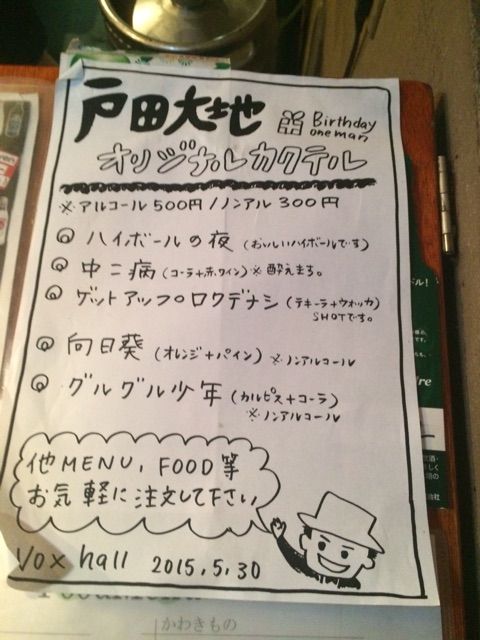 戸田大地 Birthday
oneman
オリジナルカクテル
※アルコール500円/ノンアル300円
ハイボールの夜 (おいしいハイボールです)
中二病 (コーラ+赤ワイン) ※酔えます。
ゲットアップロクデナシ (テキーラ+ウオッカ)
SHOTです。
向日葵 (オレンジ+パイン) ※ノンアルコール
グルグル少年 (カルピス+コーラ)
※ノンアルコール
他MENU, FOOD等
お気軽に注文して下さい
Vox hall 2015.5.30
かわきもの